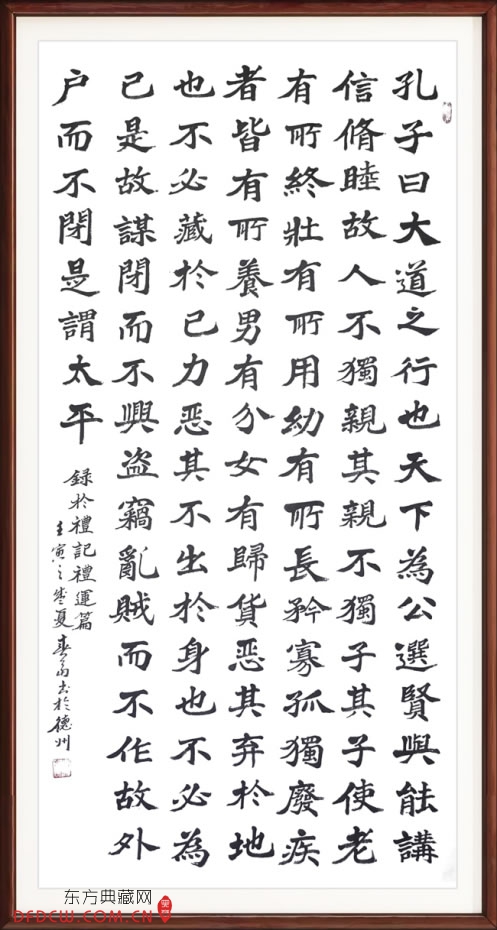 孔子曰大道之行也天下為公選賢與能講
信脩睦故人不獨親其親不獨子其子使老
有所終壯有所用幼有所長矜寡孤獨廢疾
者皆有所養男有分女有歸貨恶其弃於地
也不必藏於己力恶其不出於身也不必為
己是故謀閉而不興盗竊亂賊而不作故外
户而不閉是謂太平
録於禮記禮運篇
壬寅之盛夏春书於德州
东方典藏网
DFDCW.COM.CN